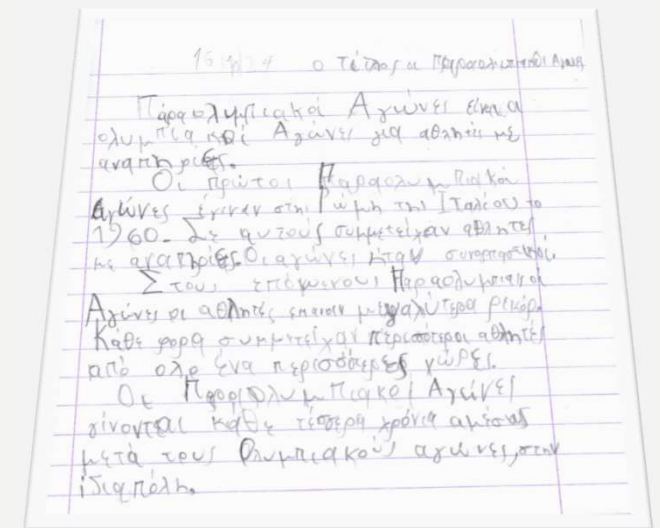 ο Τίτλος οι Παραολυμπιακοί Αγώνες
Παραολυμπιακοί Αγώνες είναι α
ολυμπιακοί Αγώνες για αθλητές με
αναπηρίες.
Οι πρώτοι Παραολυμπιακοι
Αγώνες έγιναν στη Ρώμη της Ιταλέου το
1960. Σε αυτούς συμμετείχαν αθλητες
με αναπηρίες. Οι αγώνες ήταν συναρπαστικοί.
Στους επόμενους Παραολυμπιακοί
Αγώνες οι αθλητές έκαναν μεγαλύτερα ρεκόρ.
Κάθε φορα συμμετείχαν περισσότεροι αθλητές
από ολο ένα περισσότερες χώρες.
Οι Παραολυμπιακοί Αγώνες
γίνονται κάθε τέσσερα χρόνια αμέσως
μετά τους Ολυμπιακούς αγώνες, στην
ίδια πόλη.